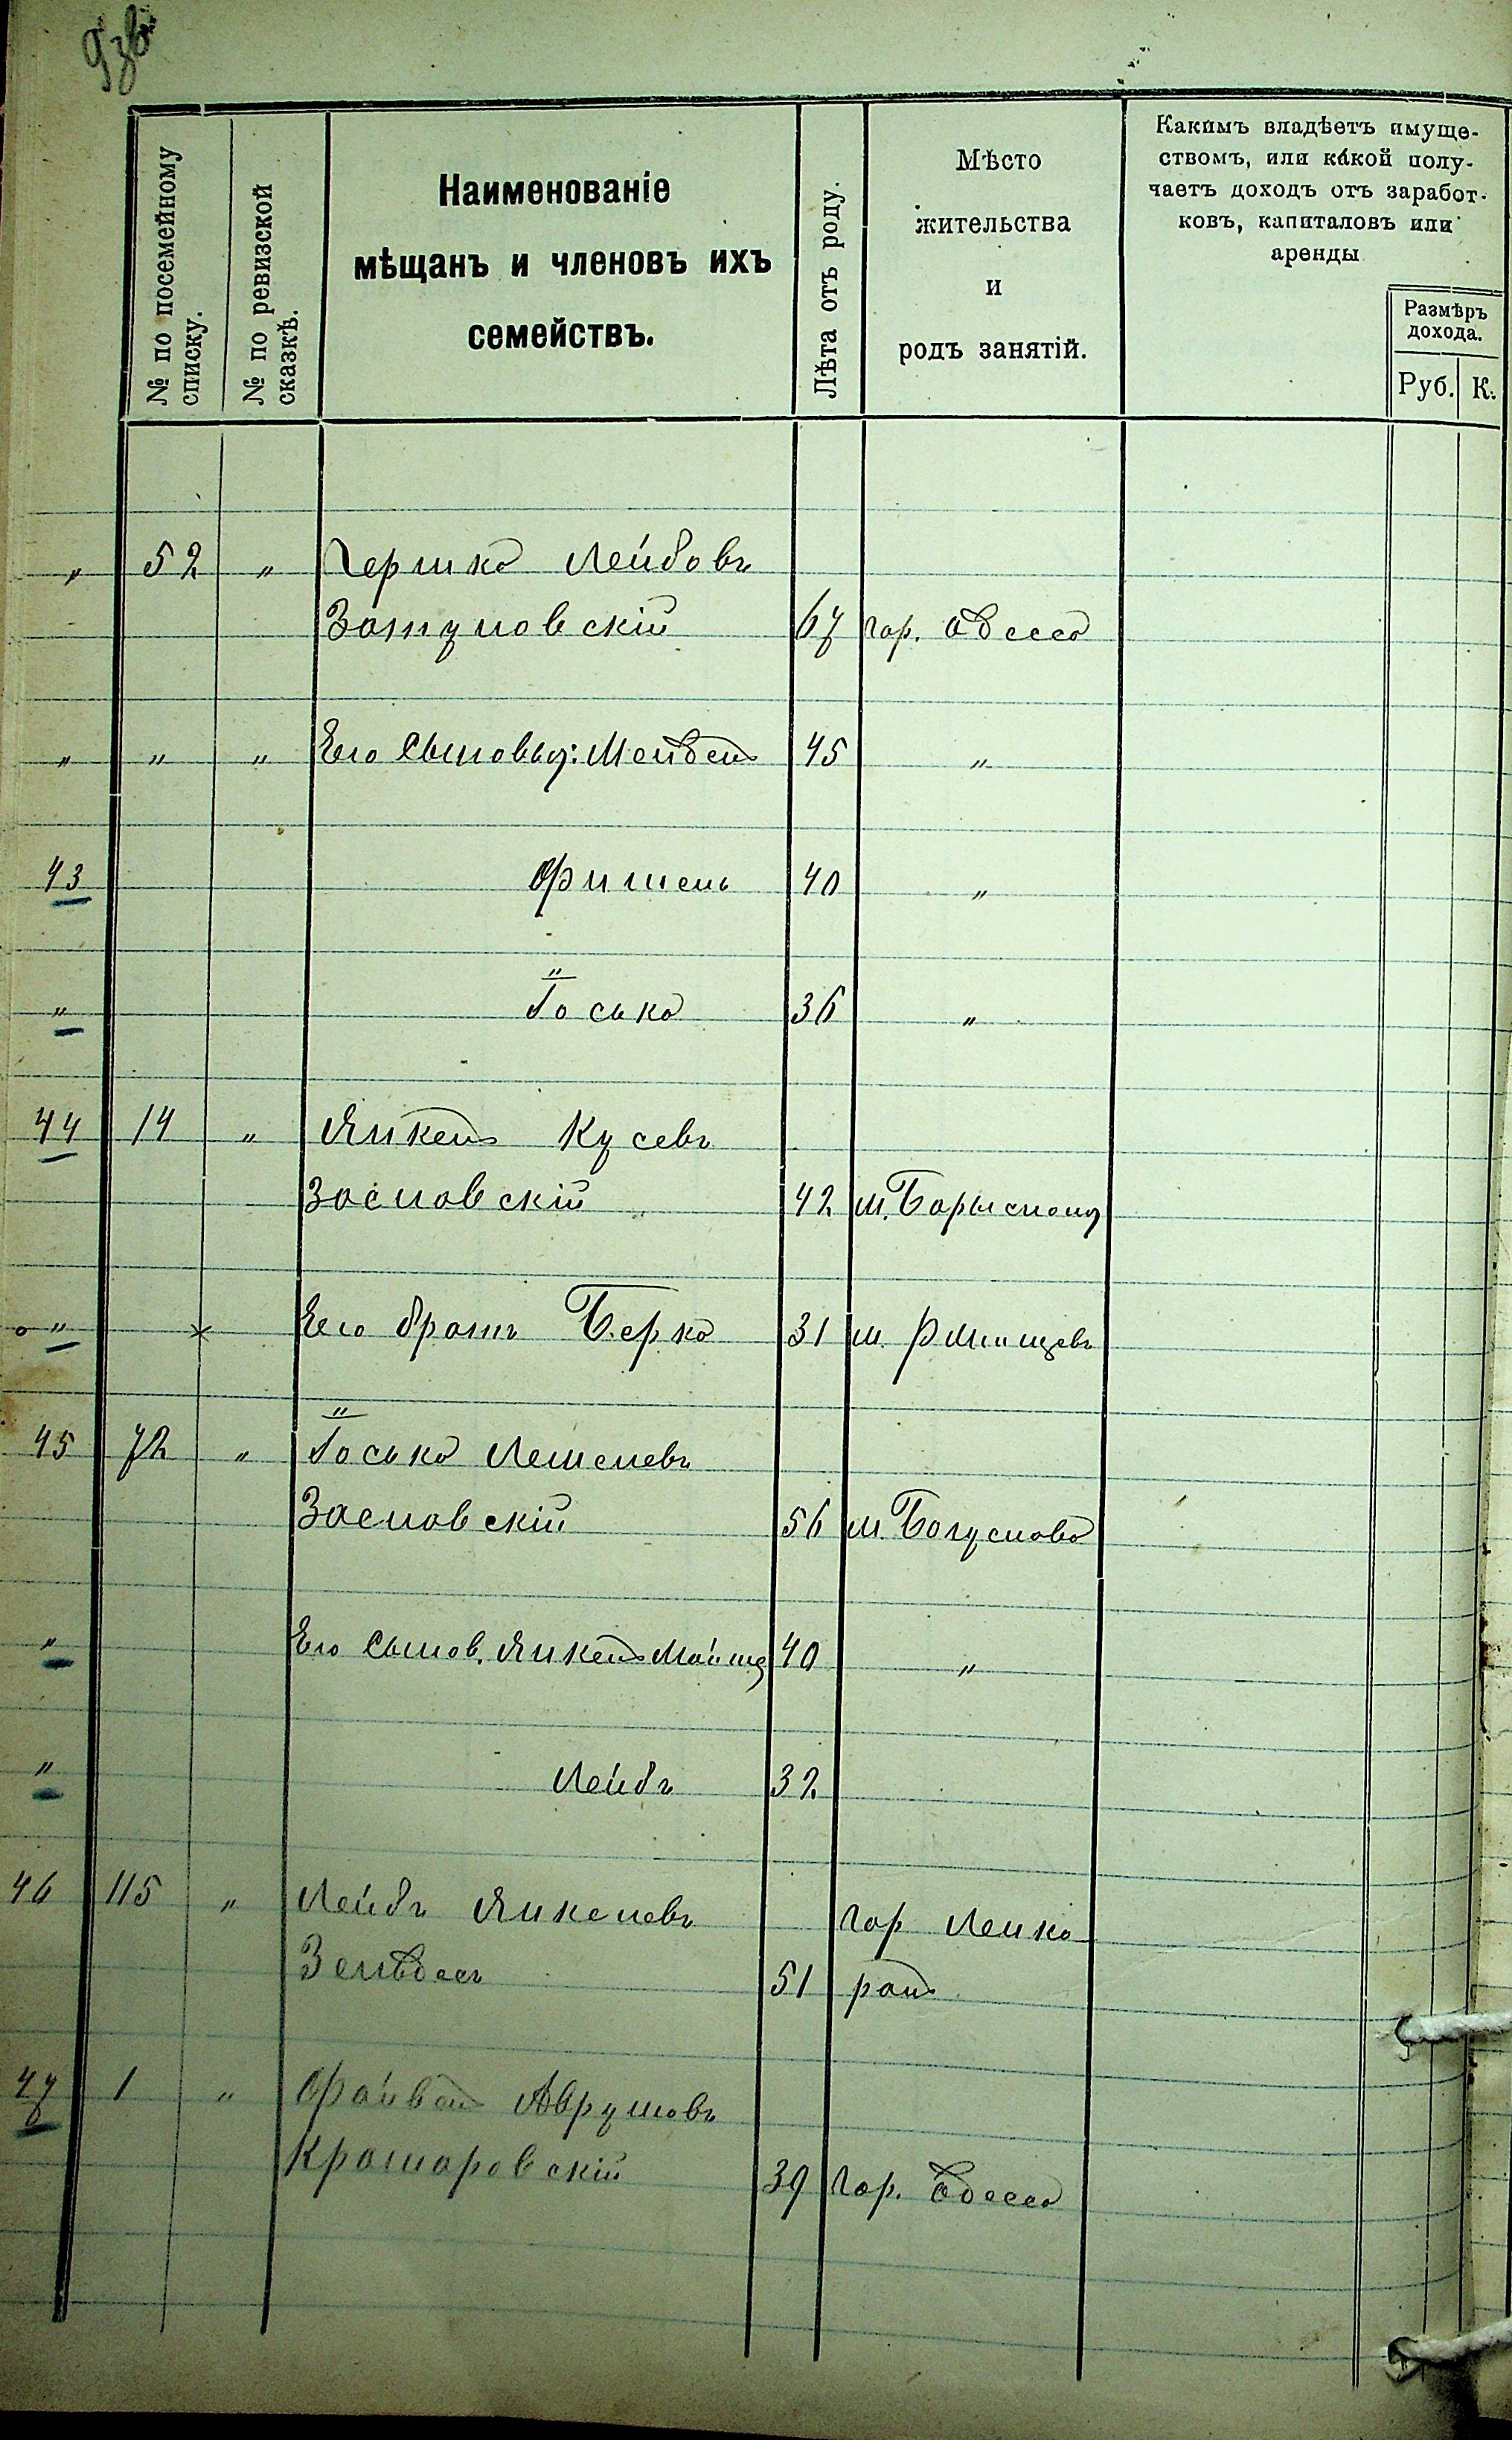 № по посемейному списку.
№ по ревизской сказкѣ.
Наименованіе
мѣщанъ и членовъ ихъ
семействъ.
Лѣта отъ роду.
Мѣсто
жительства
и
родъ занятій.
Какимъ владѣетъ имуще-
ствомъ, или какой полу-
чаетъ доходъ отъ заработ-
ковъ, капиталовъ или
аренды
Размѣръ
дохода.
Руб. К.
" 52 " Гершко Лейбовъ
67 гор. Одесса
" " " Его Сыновья: Мендель 45 "
43 Фишель 40 "
" Іосько 36 "
44 14 " Янкель Кусевъ
Заславскій 42 м.
" Его братъ Берко 31 м. Ржищевъ
45 72 " Іосько
Заславскій 56 м. Богуслава
" Его Сынов. Янкель Мойше 40 "
" Лейбъ 32
46 115 " Лейбъ Янкелевъ гор Ленко
51 рань
47 1 " Файвель Аврумовъ
Крамаровскій 39 Гор. Одесса